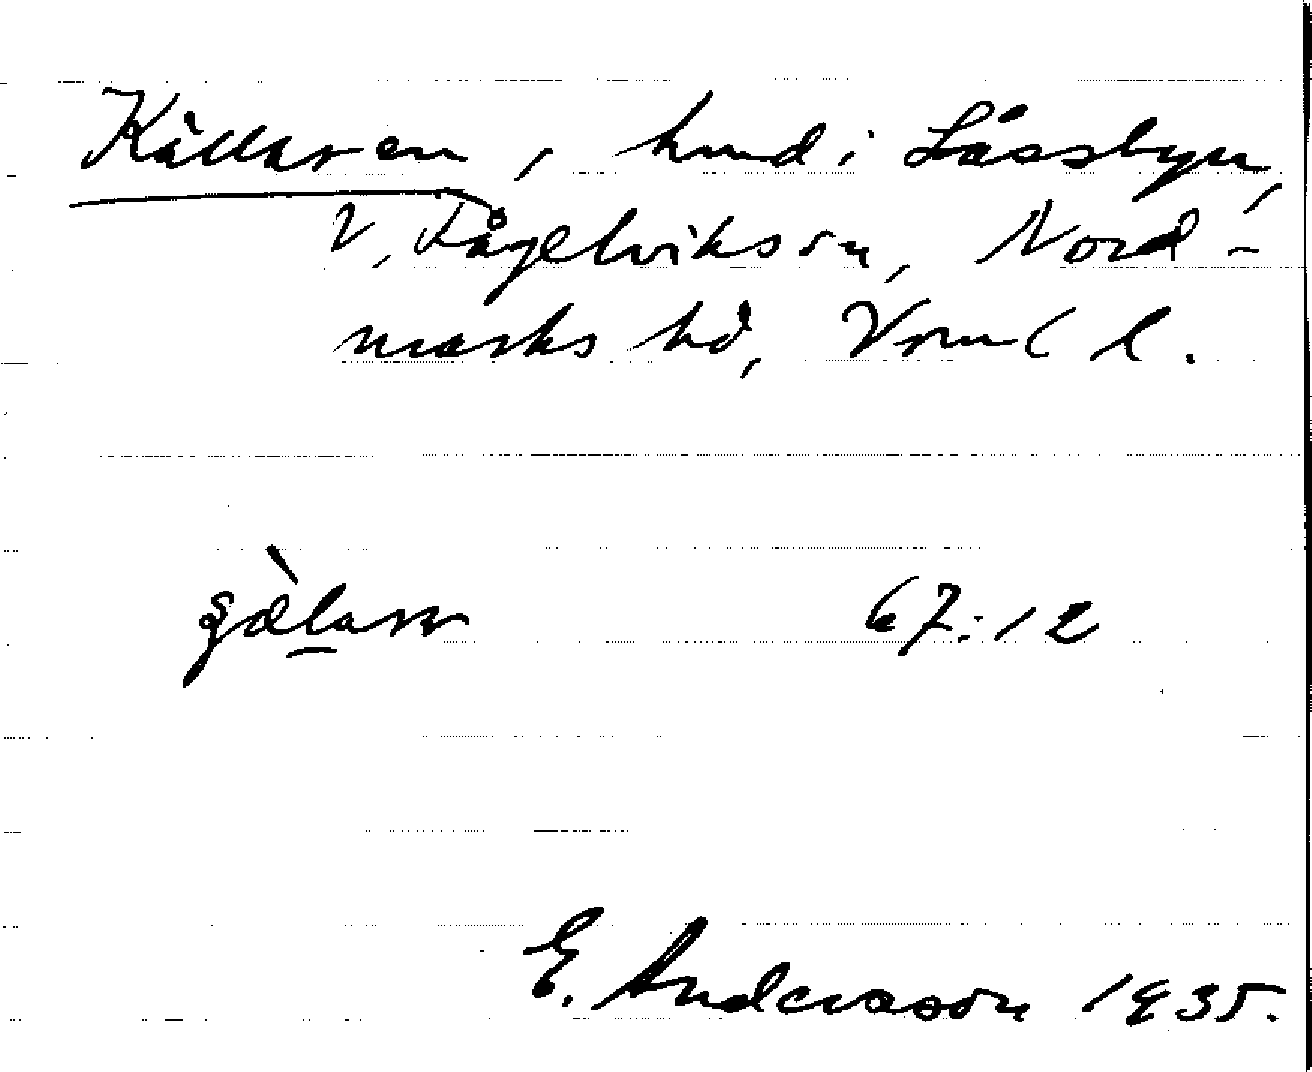 Källaren, hmd i Låssbyn,
V. Fågelviks sn, Nord-
marks hd, Vrml l.
67:12
E. Andersson 1935.